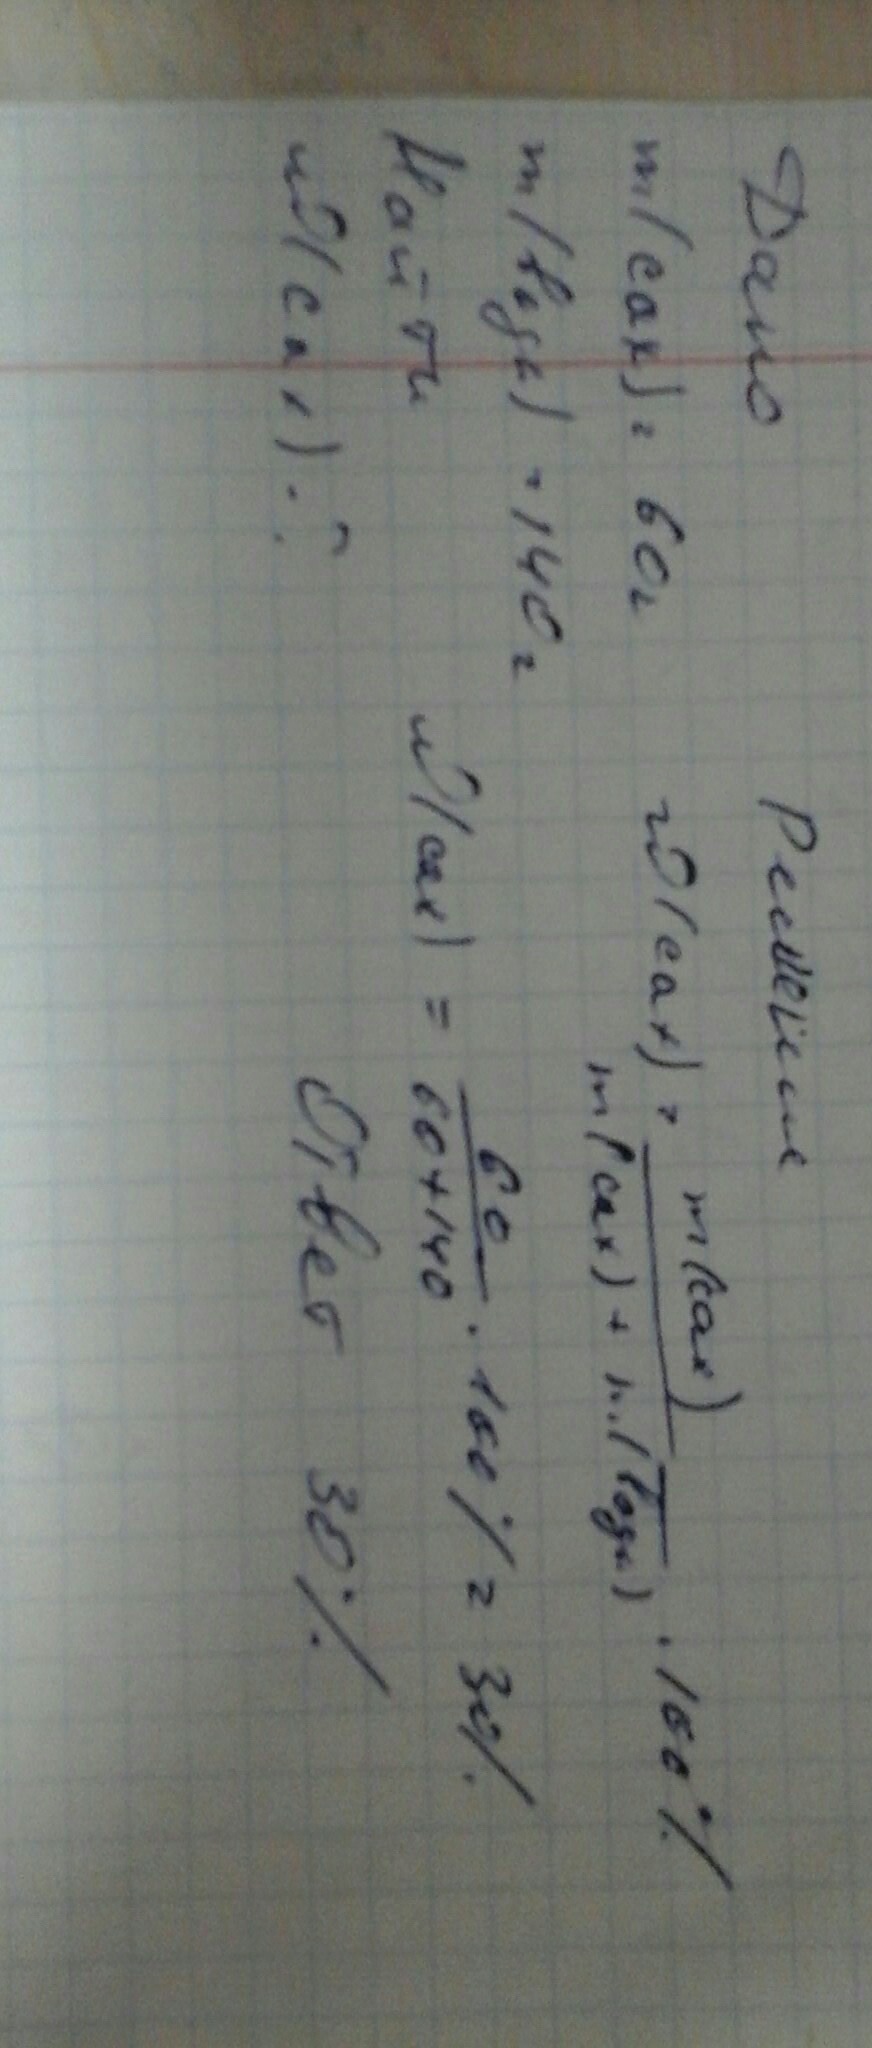 Дано
m(сах) = 60г
m(воды) = 140г
Найти
ω(сах) - ?
Решение
ω(сах) = m(сах) / m(сах) + m(воды) · 100%
ω(сах) = 60 / 60+140 · 100% = 30%
Ответ 30%